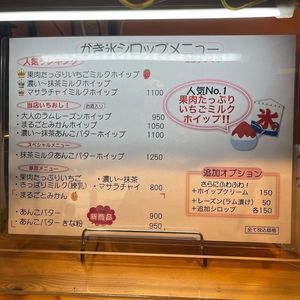 かき氷シロップメニュー
人気ランキング
果肉たっぷりいちごミルクホイップ
濃い～抹茶ミルクホイップ
マサラチャイミルクホイップ 1100
当店いちおし! お酒入り
・大人のラムレーズンホイップ 950
・まるごとみかんホイップ 1050
・濃い～抹茶あんこバターホイップ 1100
スペシャルメニュー
・抹茶ミルクあんこバターホイップ 1250
・果肉たっぷりいちご ・濃い～抹茶
・さっぱりミルク(練乳) ・マサラチャイ 800
・まるごとみかん
・あんこバター 新商品 900
・あんこバターきな粉 950
人気No.1
果肉たっぷり
いちごミルク
ホイップ!!
氷
追加オプション
さらにふわふわ!
+ホイップクリーム 150
+レーズン(ラム漬け) 50
+追加シロップ 各150
全て税込価格